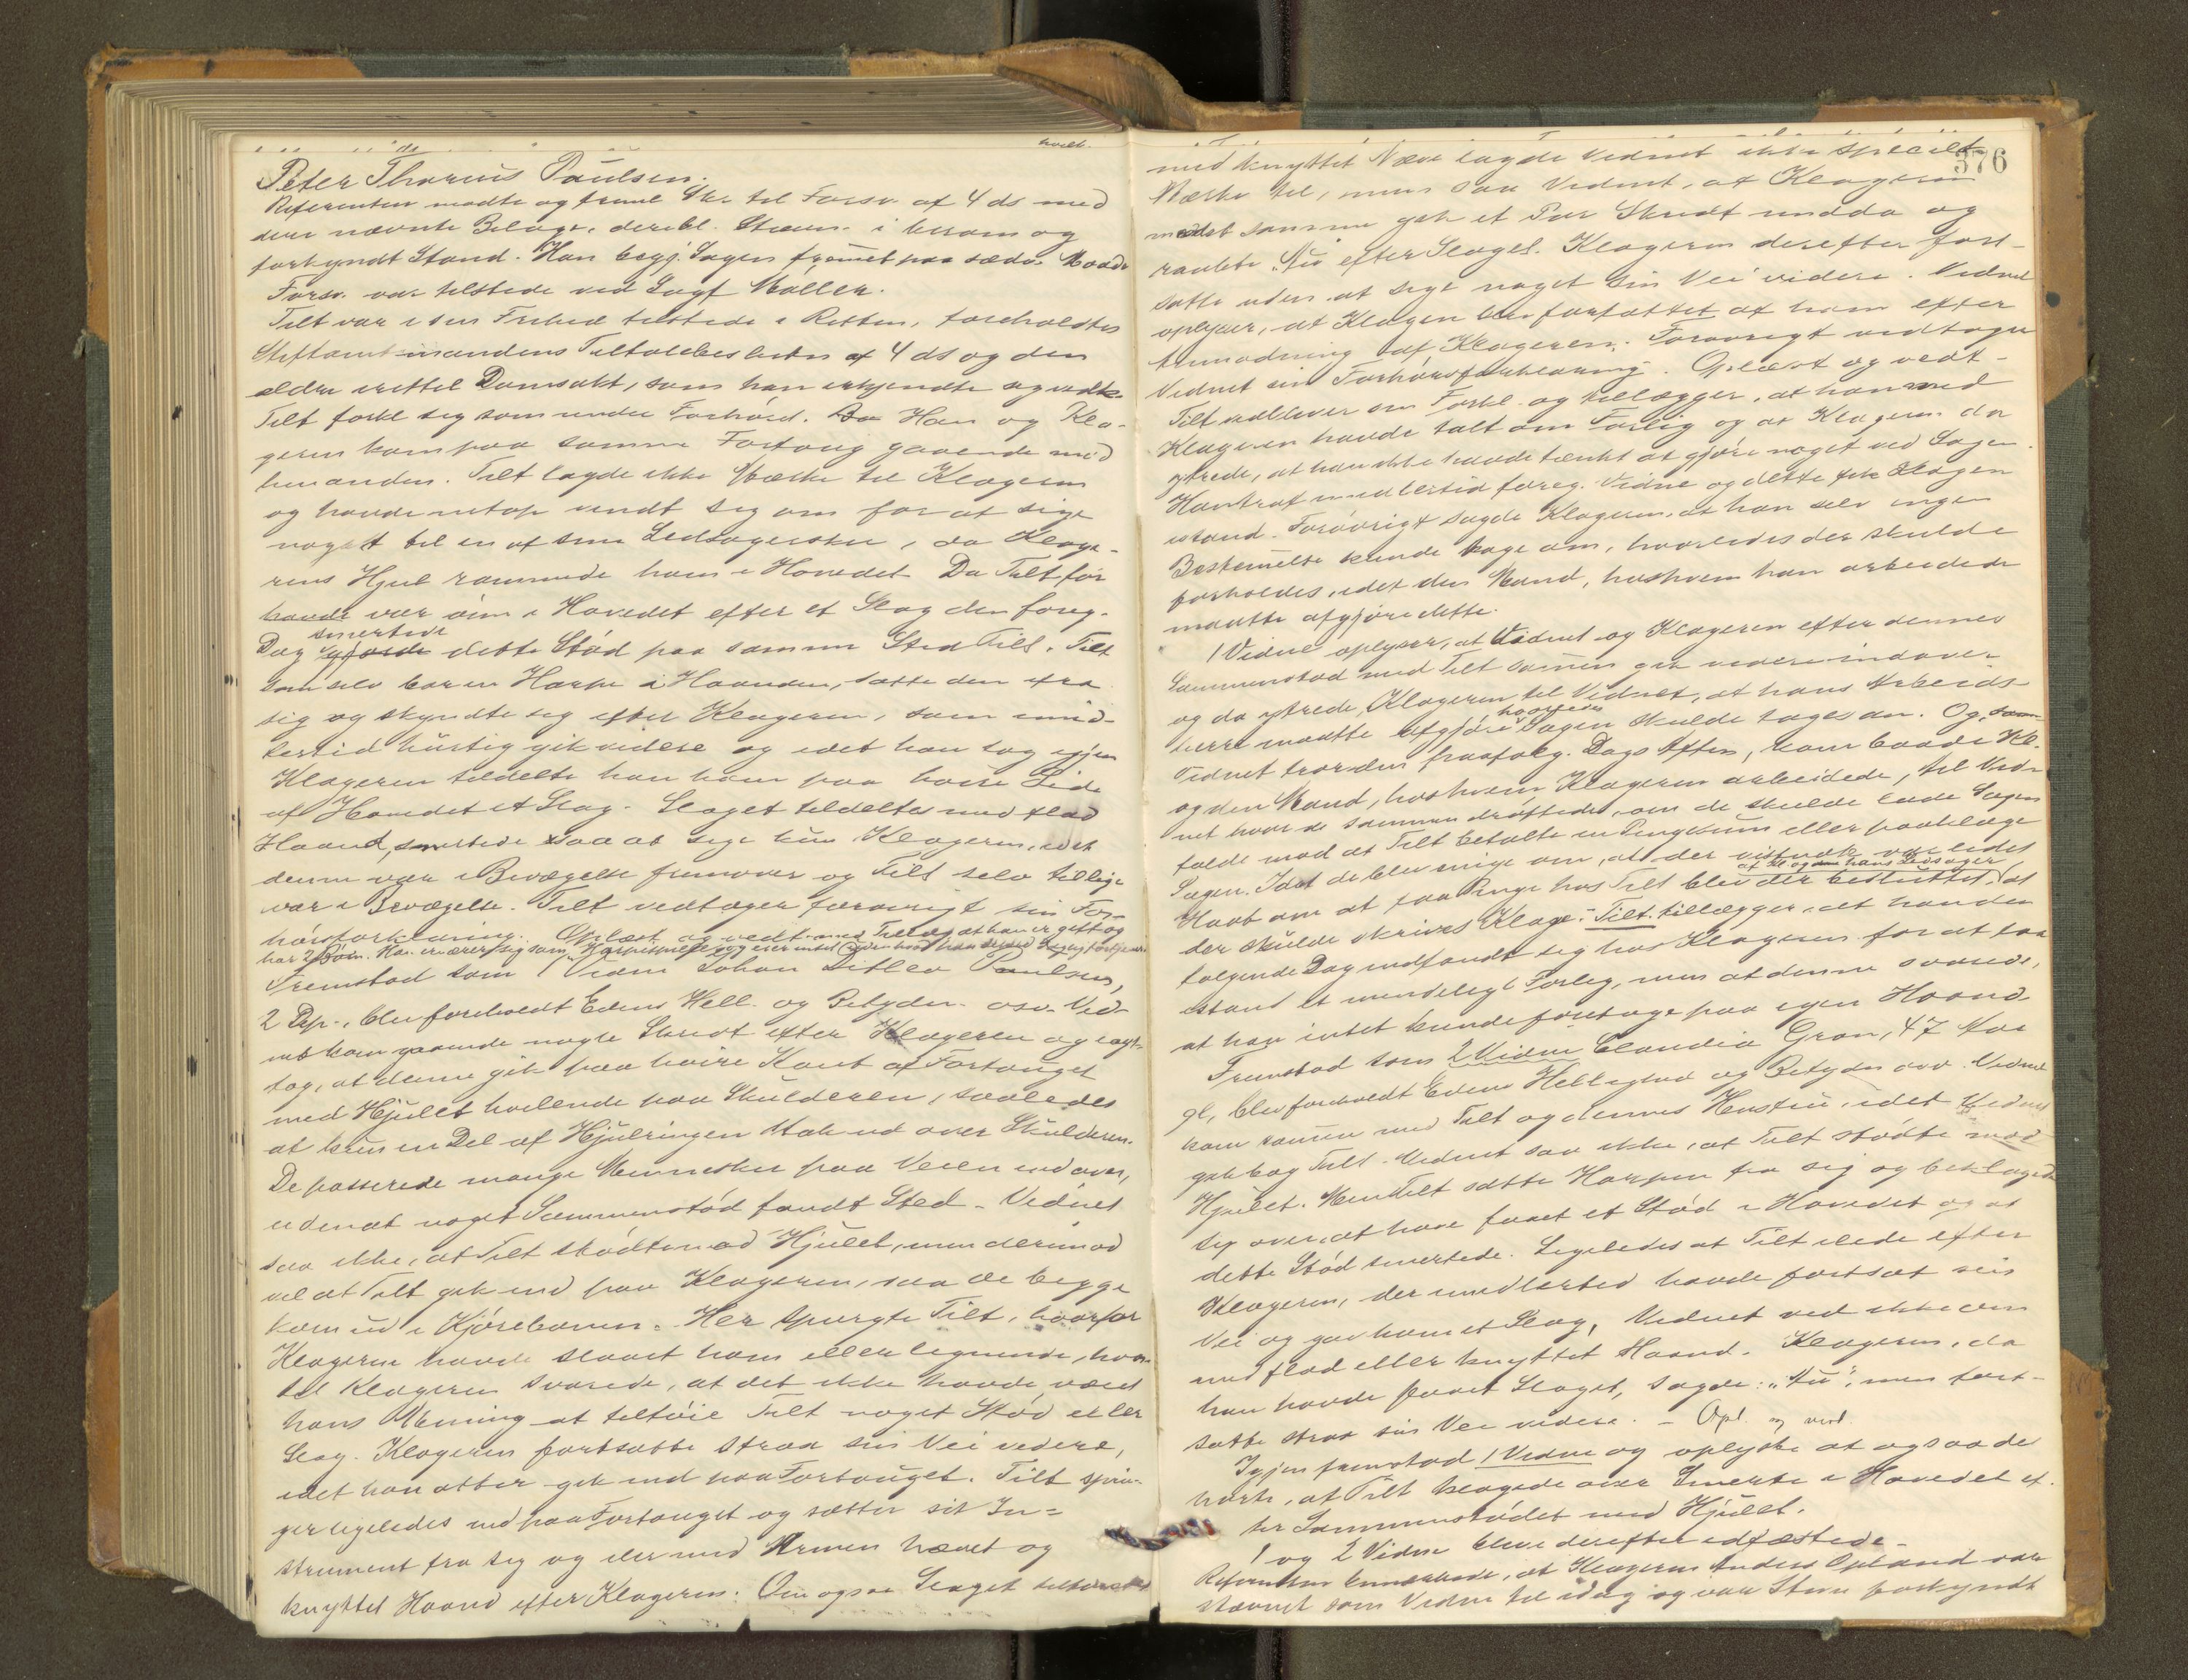 Peter Thorius Paulsen.
Referenten mødte og freml Skr. til Forsv. af 4 ds med
deri nævnte Bilage, deribl. Stævn. i besom og
forkyndt Stand. Han begj. Sagen fremmet paa sædv. Maade
Forsv. var tilstede ved Sagf Møller.
Tilt var i sin Frihed tilstede i Retten, foreholdtes
Stiftamtmandens Tiltalebeslutn af 4 ds og den
ældre Domsakt, som han erkjendte og vedtk.
Tilt forkl sig som under Forhøred. Han og Kla-
geren kom paa samme Fortoug gaaende mod
hinanden. Tilt lagde ikke Mærke til Klageren
og havde netop vendt sig om for at sige
noget til en af sine Ledsagersker, da Klage-
rens Hjul rammede ham i Hovedet. Da Tilt før
havde var øm i Hovedet efter et Slag den foreg.
smertede
Dag gjorde dette Stød paa samme Sted Tilt. Tilt
som selv bar en Harpe i Haanden, satte den fra
sig og skyndte sig efter Klageren, som imid-
lertid hurtig gik videre og idet han tog igjen
Klageren tildelte han ham paa høire Side
af Hovedet et Slag. Slaget tildeltes med flad
Haand, smertede saa at sige kun Klageren, idet
denne var i Bevægelse fremover og Tilt selv tillige
var i Bevægelse. Tilt vedtager forøvrigt sin For-
hørsforklaring. Oplæst og vedt med Tillæg at han er gift og
har 2 Børn. Han ernærer sig som Harpespiller og eier intet uden hvad han derved
Fremstod som 1 Vidne Johan Ditlev Paulsen,
2 Dep., blev foreholdt Edens Hell. og Betydn. osv. Vid-
net kom gaaende nogle Skridt efter Klageren og iagt-
tog, at denne gik paa høire Kant af Fortouget
med Hjulet hvilende paa Skulderen, saaledes
at kun en Del af Hjulringen stak ud over Skulderen.
De passerede mange Mennesker paa Veien indover,
uden at noget Sammenstød fandt Sted. Vidnet
saa ikke, at Tilt stødte mod Hjulet, men derimod
vel at Tilt gik ind paa Klageren, saa de begge
kom ud i Kjørebanen. Her spurgte Tilt, hvorfor
Klageren havde slaaet ham eller lignende, hvor-
til Klageren svarede, at det ikke havde været
hans Mening at tilføie Tilt noget Stød eller
Slag. Klageren fortsatte strax sin Vei videre,
idet han atter gik ind paa Fortouget. Tilt sprin-
ger ligeledes ind paa Fortouget og sætter sit In-
strument fra sig og iler med Armen hævet og
knyttet Haand efter Klageren. Om ogsaa Slaget tildeltes
376
med knyttet Næve lagde Vidnet ikke specielt
Mærke til, men saa Vidnet, at Klageren
med samme gik et Par Skridt unda og
raabte Au efter Slaget. Klageren derefter fort-
satte uden at sige noget sin Vei videre. Vidnet
oplyser, at Klagen blev forfattet af ham efter
Anmodning af Klageren. Forøvrigt vedtager
Vidnet sin Forhørsforklaring. Oplæst og vedt-
Tilt vedbliver sin Forkl. og tillægger, at han med
Klageren havde talt om Forlig og at Klageren da
ytrede, at han ikke havde tænkt at gjøre noget ved Sagen.
Han traf imidlertid foreg. Vidne og dette fik Klagen
istand. Forøvrigt sagde Klageren, at han selv ingen
Bestemmelse kunde tage om, hvorledes der skulde
forholdes, idet den Mand, hos hvem han arbeidede
maatte afgjøre dette.
1 Vidne oplyser, at Vidnet og Klageren efter dennes
Sammenstød med Tilt sammen gik videre indover
og da ytrede Klageren til Vidnet, at hans Arbeids-
hvorledes
herre maatte afgjøre Sagen skulde tages an. Og, som
Vidnet tror den paafølg. Dags Aften, kom baade Kl.
og den Mand, hos hvem Klageren arbeidede, til Vid-
net hvor de sammen drøftede, om de skulde lade Sagen
falde mod at Tilt betalte en Pengesum eller paaklage
Sagen. Idet de blev enige om, at der vistnok var lidet
Haab om at faa Penge hos Tilt blev der besluttet, at
der skulde skrives Klage. Tilt tillægger, at han den
følgende Dag indfandt sig hos Klageren for at faa
istand et mindeligt Forlig, men at denne svarede,
at han intet kunde foretage paa egen Haand.
Fremstod som 2 Vidne Claudia Gran, 47 Aar
gl, blev foreholdt Edens Hellighed og Betydn osv. Vidnet
kom sammen med Tilt og dennes Hustru, idet Vidnet
gik bag Tilt. Vidnet saa ikke, at Tilt stødte mod
Hjulet. Men Tilt satte Harpen fra sig og beklagede
sig over, at have faaet et Stød i Hovedet og at
dette Stød smertede. Ligeledes at Tilt ilede efter
Klageren, der imidlertid havde fortsat sin
Vei og gav ham et Slag, Vidnet ved ikke om
med flad eller knyttet Haand. Klageren, da
han havde faaet Slaget, sagde: "Au", men fort-
satte strax sin Vei videre. - Opl. og vedt.
Igjen fremstod 1 Vidne og oplyste at ogsaa de
hørte, at Tilt klagede over Smerte i Hovedet ef-
ter Sammenstødet med Hjulet.
1 og 2 Vidne blev derefter edfæstede.
Referenten bemærkede, at Klageren Anders Opland var
stævnet som Vidne til idag og var Stævn forkyndt